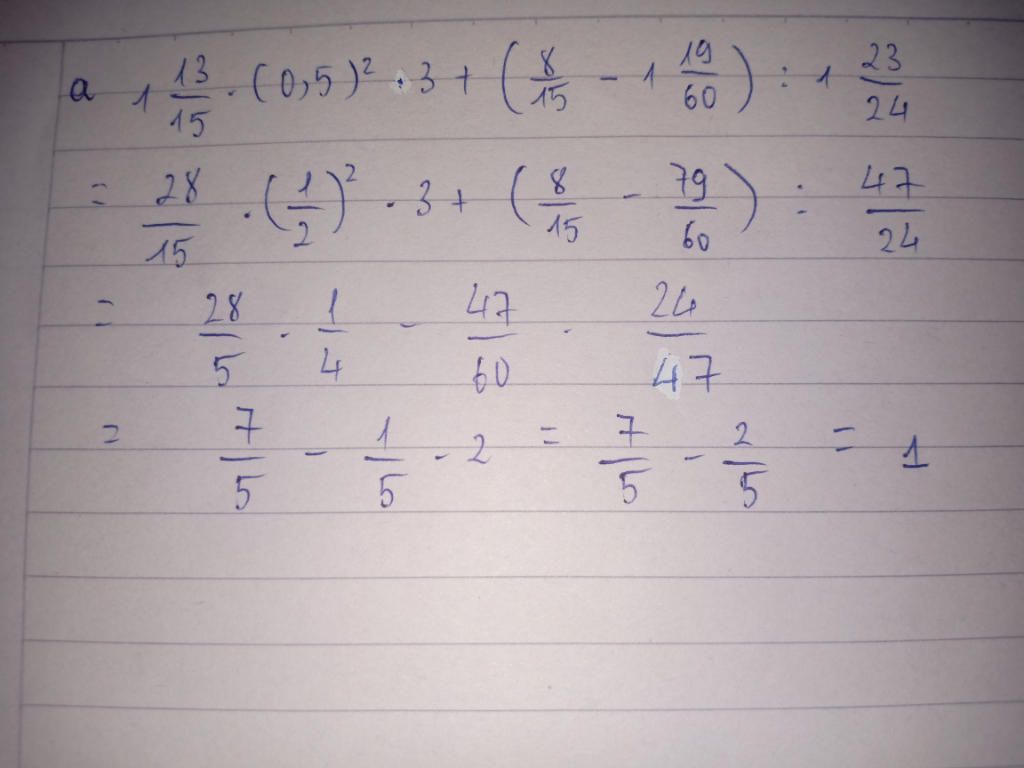 a 1 13/15 · (0,5)² · 3 + (8/15 - 1 19/60) : 1 23/24
= 28/15 · (1/2)² · 3 + (8/15 - 79/60) : 47/24
= 28/5 · 1/4 - 47/60 · 24/47
= 7/5 - 1/5 · 2 = 7/5 - 2/5 = 1